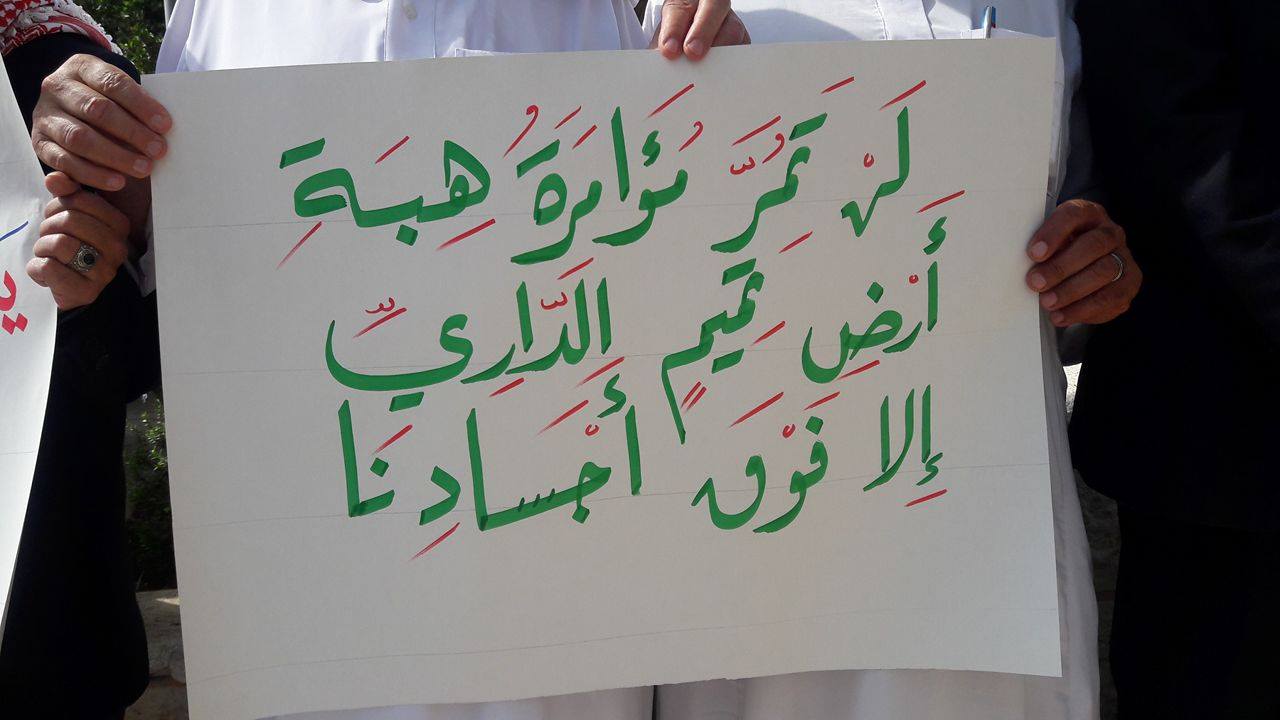 لَنْ تَمُرَّ مُؤَامَرَةُ هِبَةِ
أَرْضِ تَمِيمٍ الدَّارِيِّ
إِلا فَوْقَ أَجْسَادِنَا